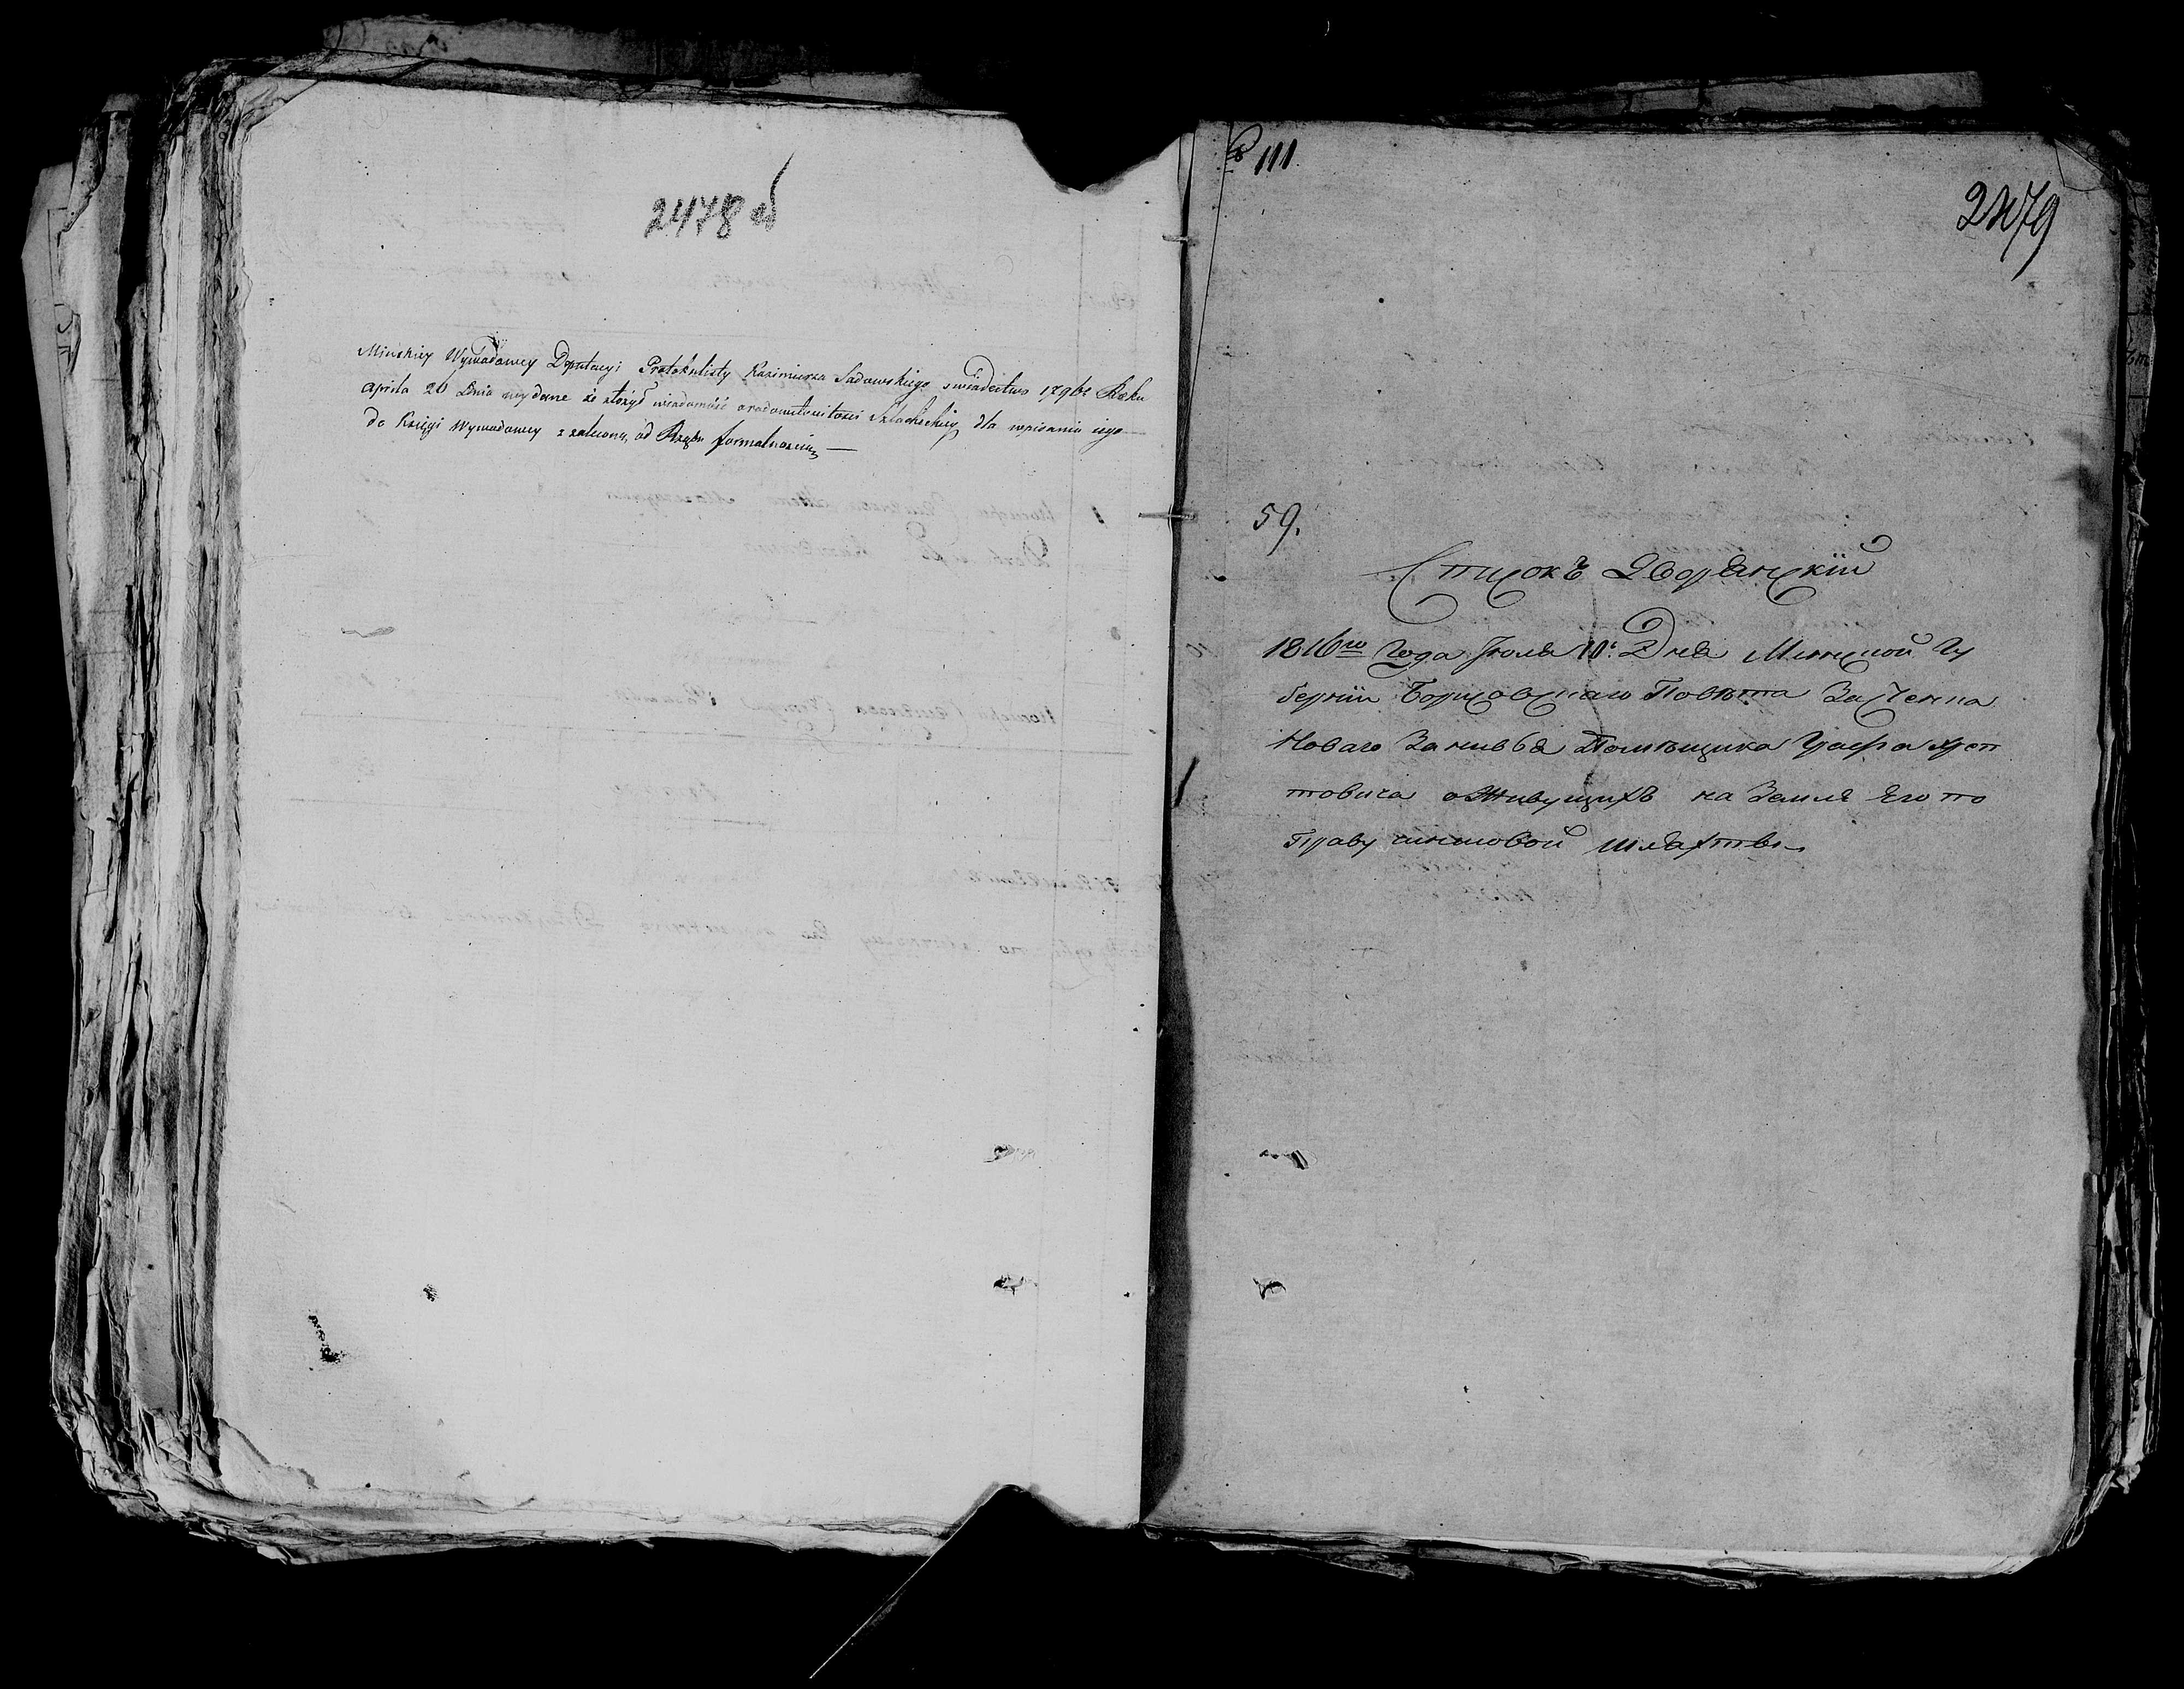 2478 об
Minskiey Wywodowey Deputacyi Protokulisty Kazimierza Sadowskiego swiadectwo 1796º Roku
Aprila 20 Dnia wydane że złożył wiadomość o rodowitowitości Szlacheckiey dla wpisania iego
do Księgi Wywodowey z zaleconą od Rządu formalnością —
111
2479
59.
Списокъ Дворянскій
1816го Года Іюля 10: Дня Минской Гу
берніи Борисовскаго Повѣта Застенка
Новаго Занивья Помѣщика Графа Хреп
товича о Живущихъ на Земле Его по
Праву чиншовой шляхты.